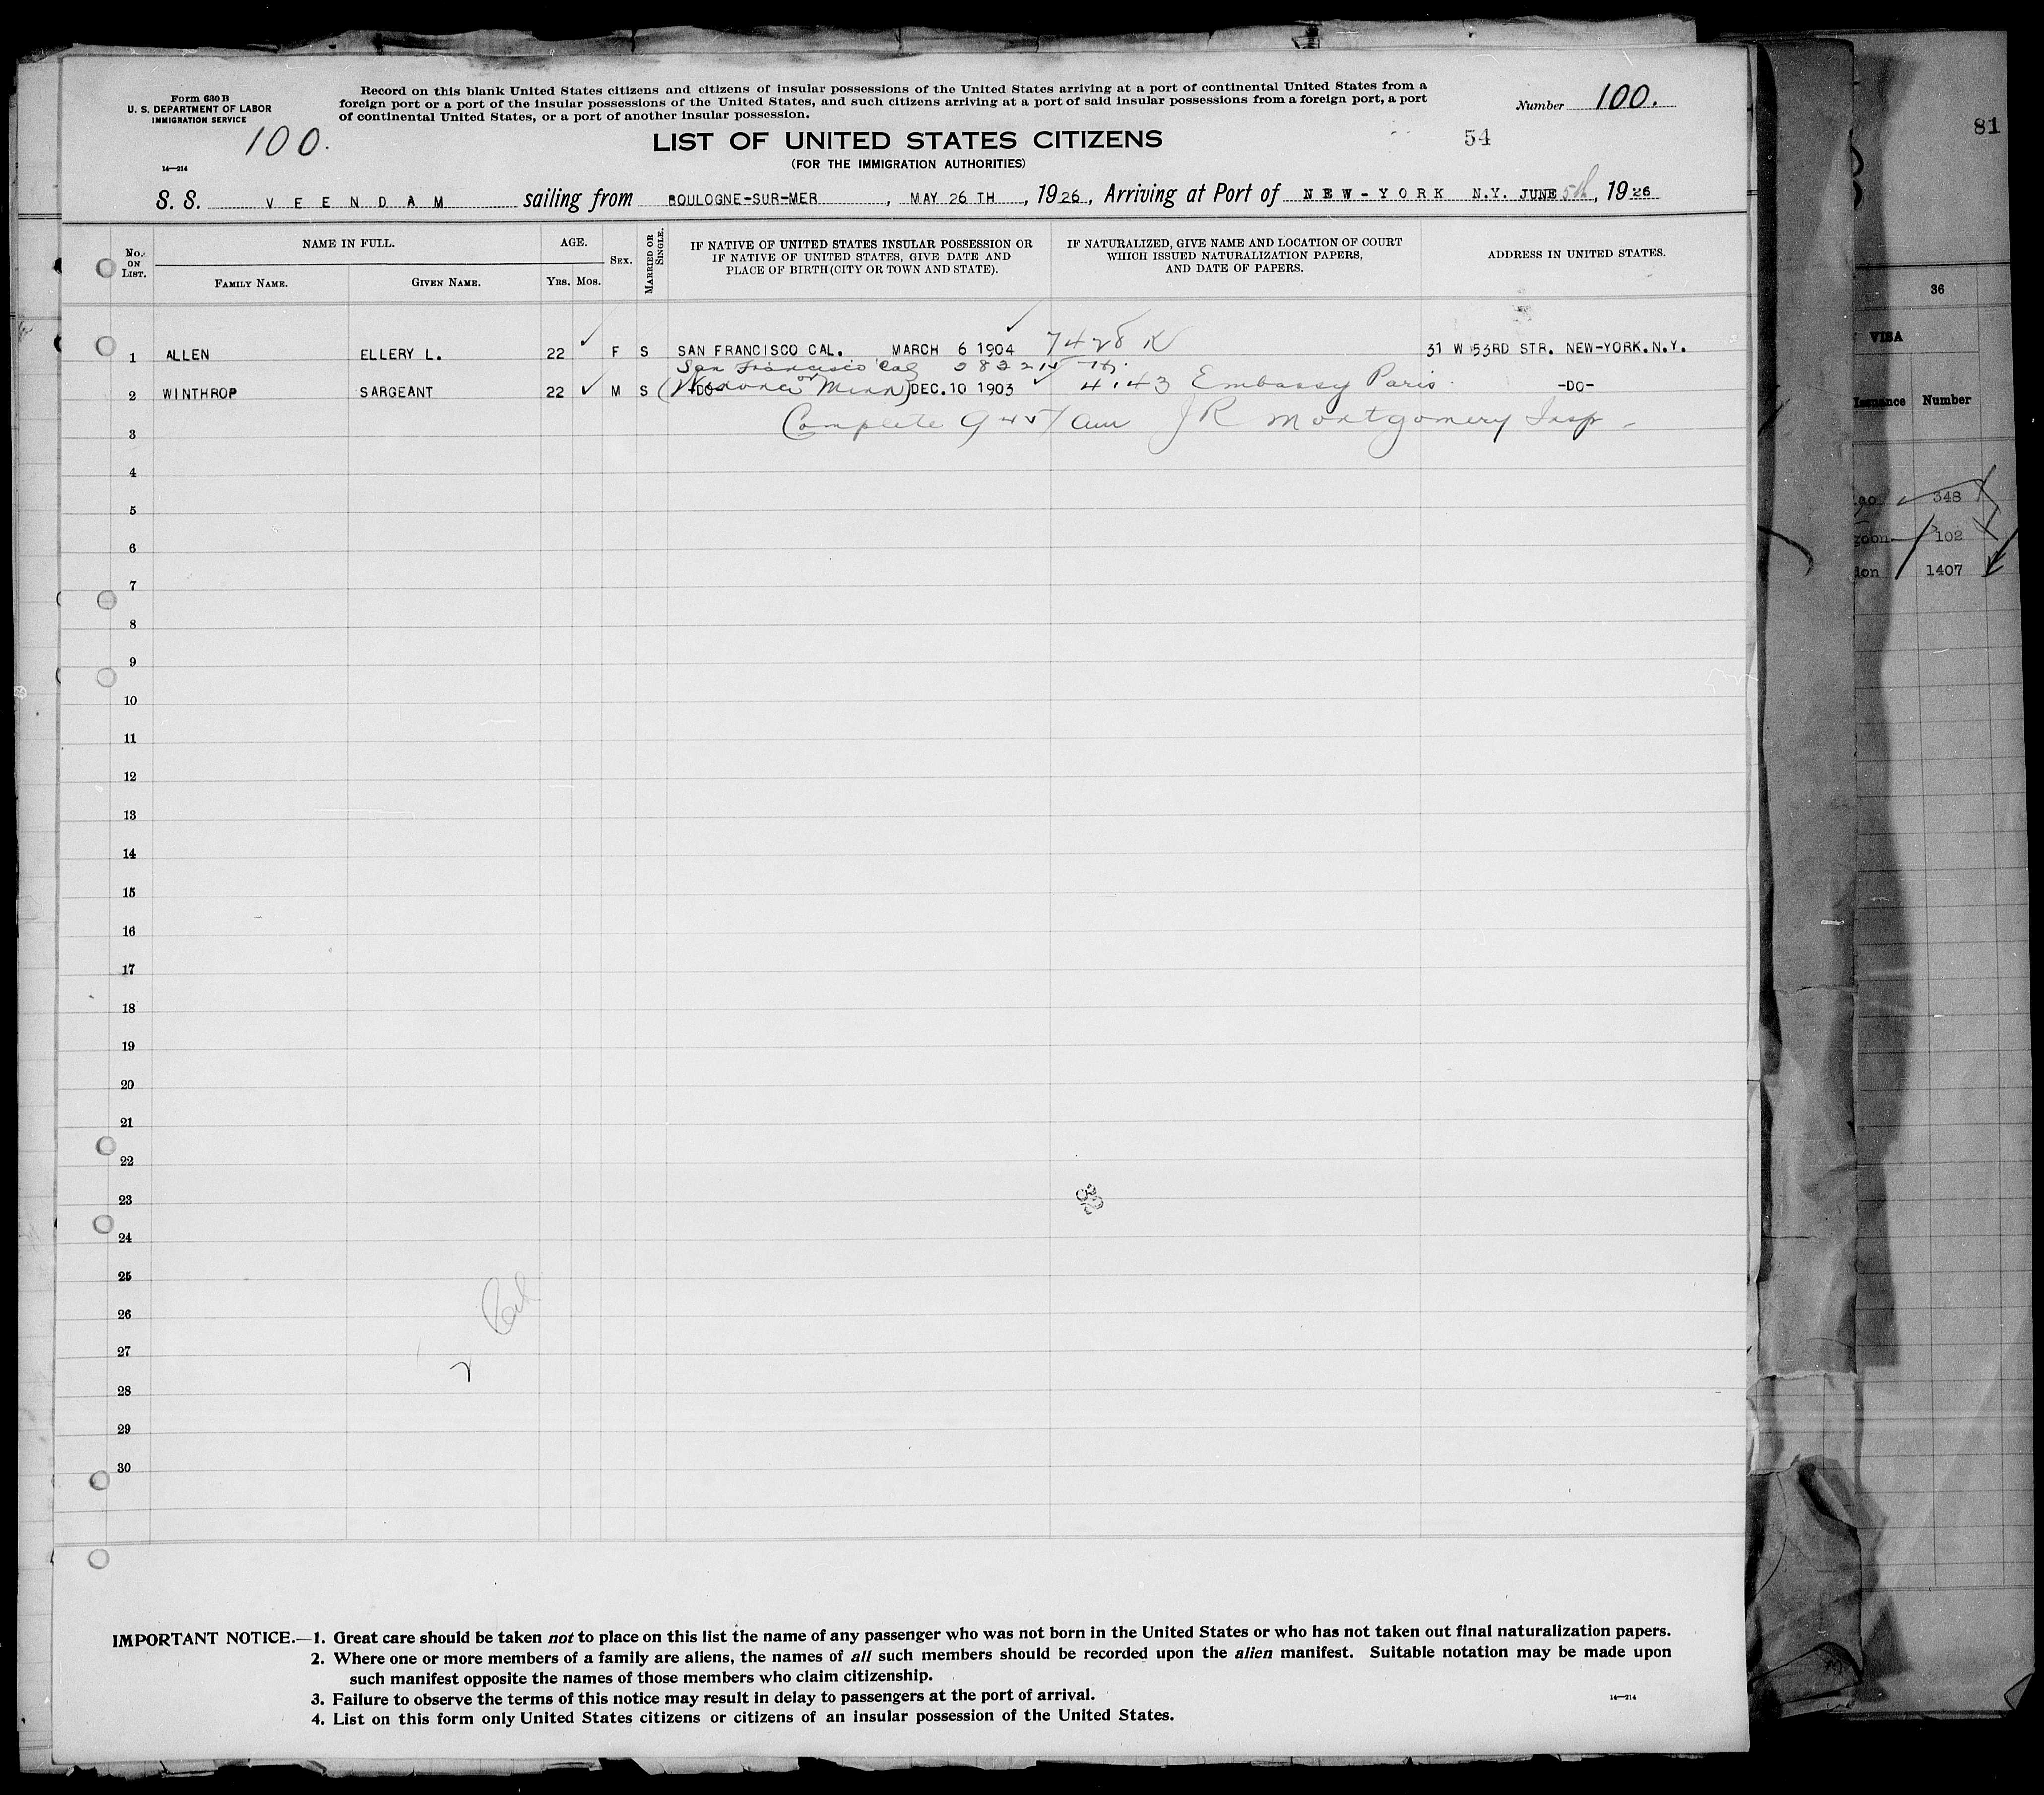 Form 630 B
U. S. DEPARTMENT OF LABOR
IMMIGRATION SERVICE
100.
14—214
Record on this blank United States citizens and citizens of insular possessions of the United States arriving at a port of continental United States from a
foreign port or a port of the insular possessions of the United States, and such citizens arriving at a port of said insular possessions from a foreign port, a port
of continental United States, or a port of another insular possession.
Number 100.
LIST OF UNITED STATES CITIZENS
54
(FOR THE IMMIGRATION AUTHORITIES)
S. S. VEENDAM sailing from BOULOGNE-SUR-MER, MAY 26 TH, 1926, Arriving at Port of NEW-YORK N.Y. JUNE 5th, 1926
No. ON LIST.
NAME IN FULL.
FAMILY NAME.
GIVEN NAME.
AGE.
YRS. MOS.
SEX.
MARRIED OR SINGLE.
IF NATIVE OF UNITED STATES INSULAR POSSESSION OR
IF NATIVE OF UNITED STATES, GIVE DATE AND
PLACE OF BIRTH (CITY OR TOWN AND STATE).
IF NATURALIZED, GIVE NAME AND LOCATION OF COURT
WHICH ISSUED NATURALIZATION PAPERS,
AND DATE OF PAPERS.
ADDRESS IN UNITED STATES.
7428 K
1 ALLEN ELLERY L. 22 ✓ F S SAN FRANCISCO CAL. MARCH 6 1904 ✓ 31 W 53RD STR. NEW-YORK.N.Y.
San Francisco Cal
2 WINTHROP SARGEANT 22 ✓ M S -DO- (Winona Minn) or DEC.10 1903 ✓ 4143 Embassy Paris -DO-
3 Complete JR Montgomery Insp
4
5
6
7
8
9
10
11
12
13
14
15
16
17
18
19
20
21
22
23
24
25
26
27
28
29
30
IMPORTANT NOTICE.—1. Great care should be taken not to place on this list the name of any passenger who was not born in the United States or who has not taken out final naturalization papers.
2. Where one or more members of a family are aliens, the names of all such members should be recorded upon the alien manifest. Suitable notation may be made upon
such manifest opposite the names of those members who claim citizenship.
3. Failure to observe the terms of this notice may result in delay to passengers at the port of arrival.
4. List on this form only United States citizens or citizens of an insular possession of the United States.
14—214
81
36
VISA
Issuance Number
348
102
1407